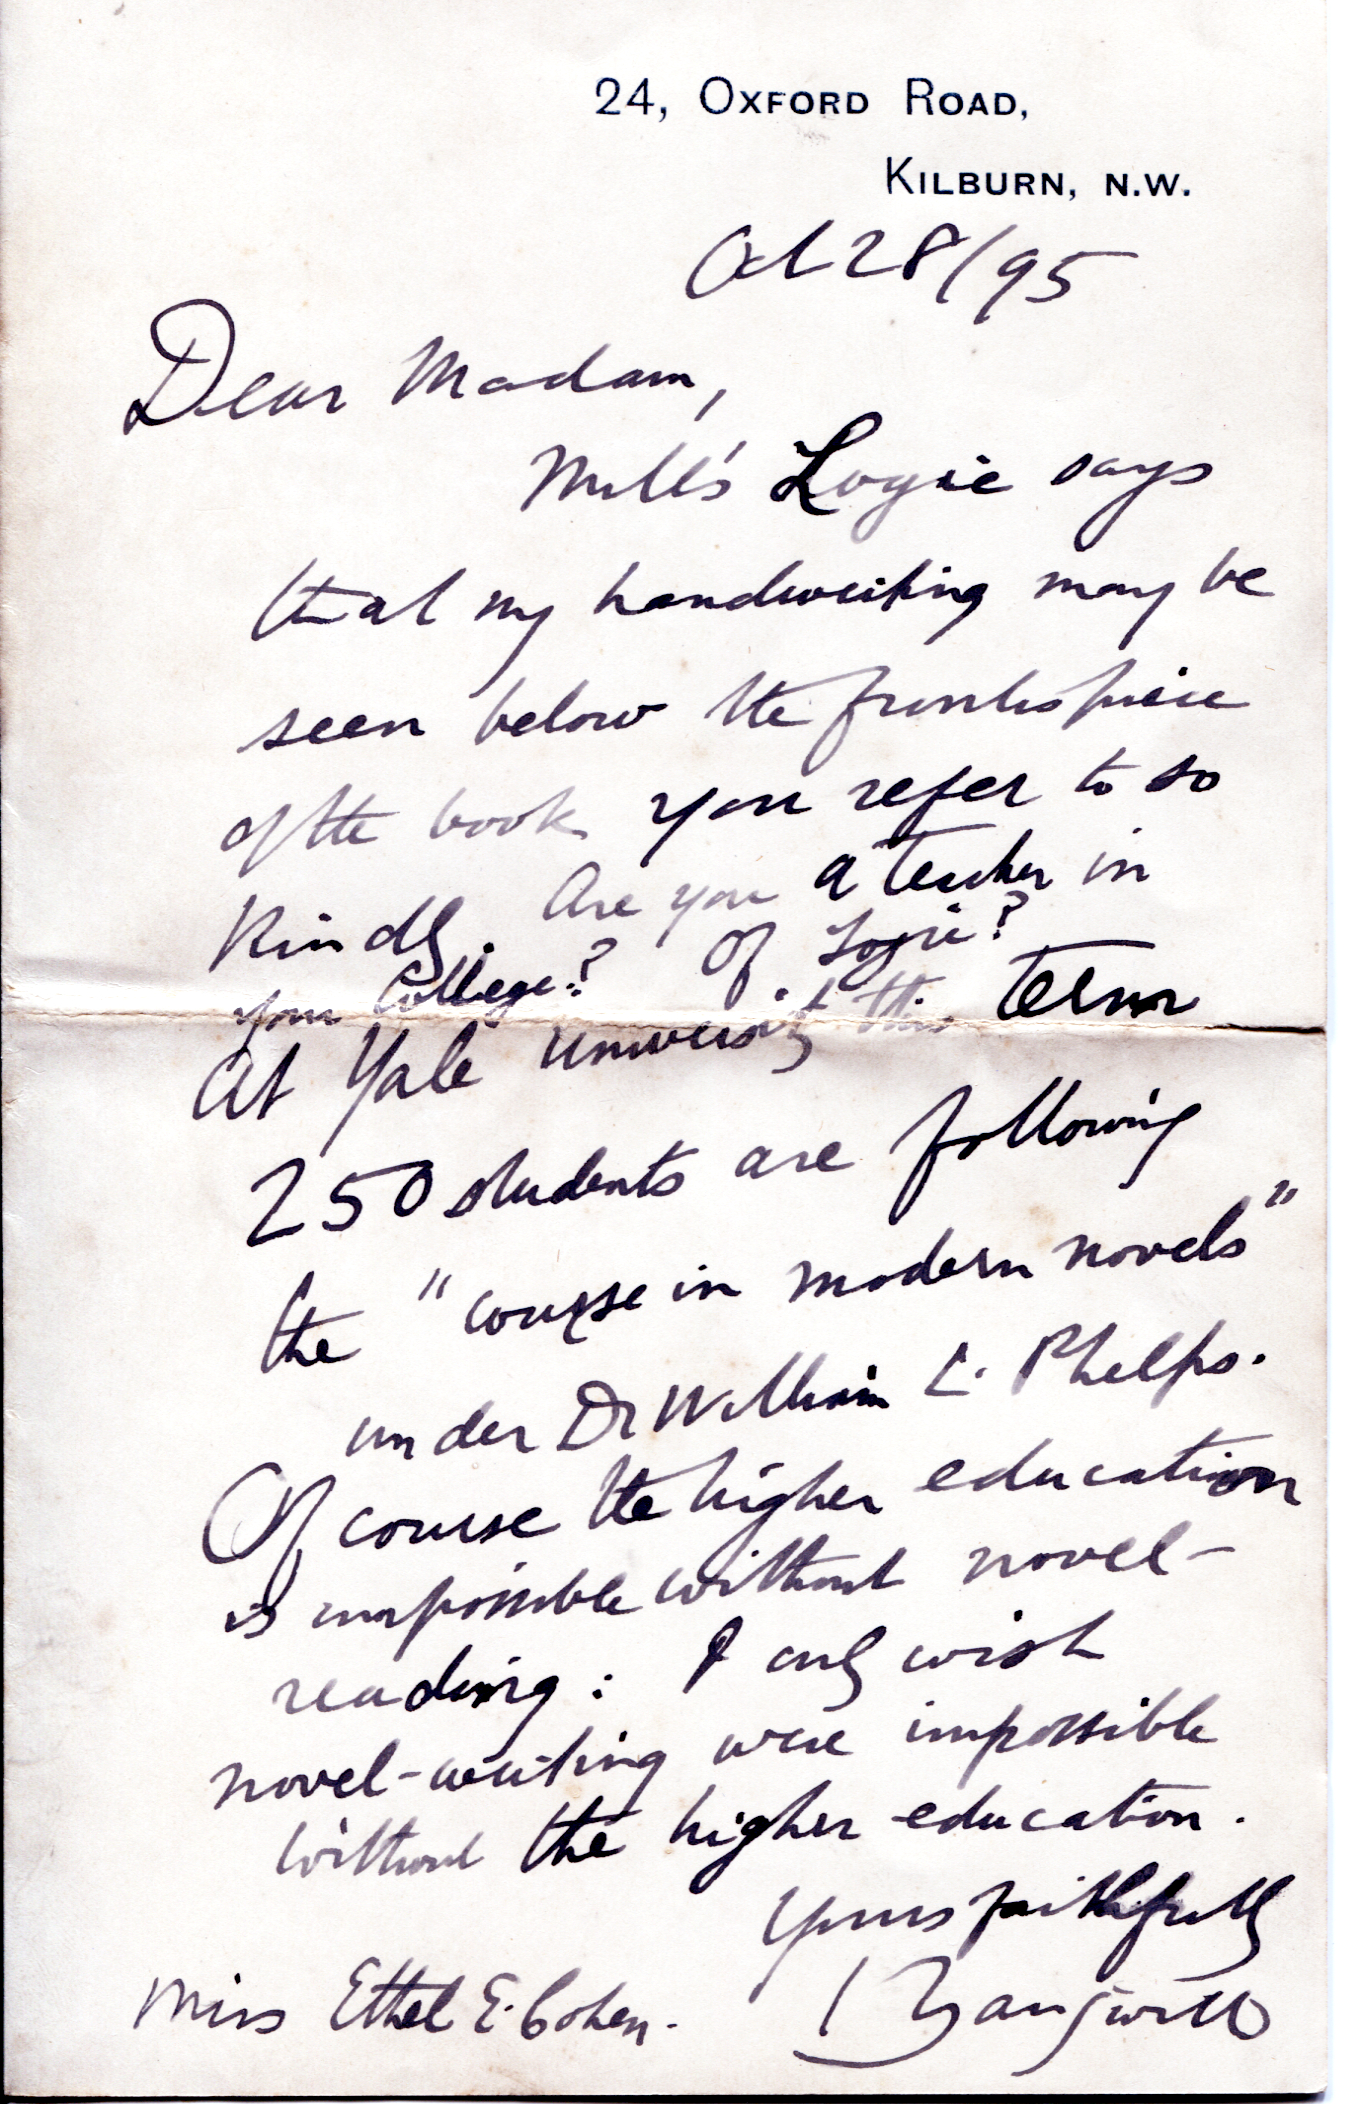 24, OXFORD ROAD,
KILBURN, N.W.
Oct 28/95
Dear Madam,
Mill's Logic says
that my handwriting may be
seen below the frontispiece
of the book you refer to so
kindly. Are you a teacher in
your College? Of Logic?
At Yale University this term
250 students are following
the "course in modern novels"
under Dr William L. Phelps.
Of course the higher education
is impossible without novel-
reading: I only wish
novel-writing were impossible
without the higher education.
Yours faithfully
I Zangwill
Miss Ethel E. Cohen.